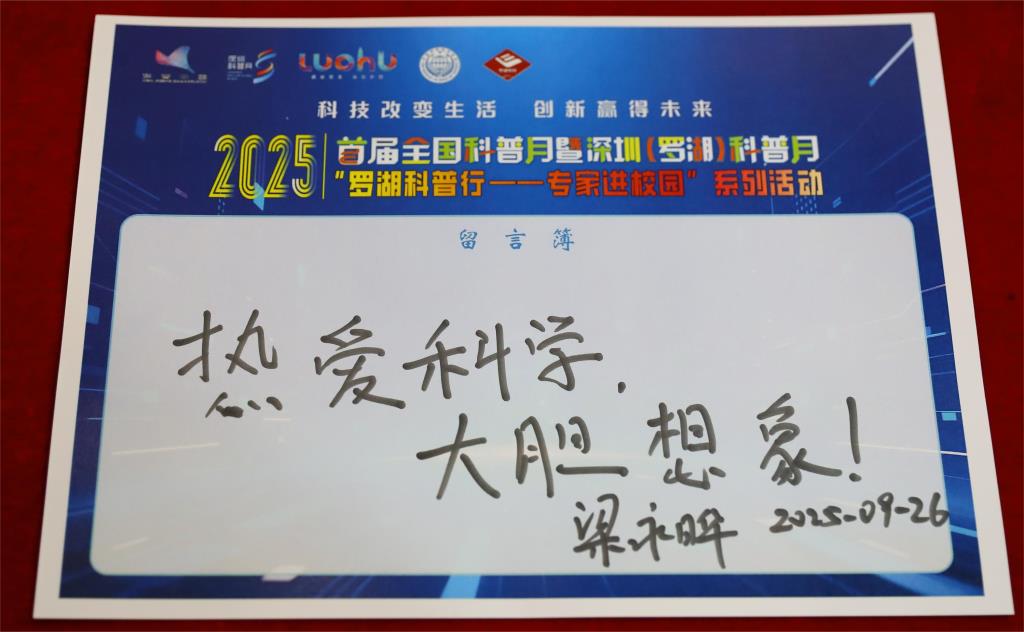 深圳科普月
LUOHU
科技改变生活 创新赢得未来
2025 首届全国科普月暨深圳（罗湖）科普月
“罗湖科普行——专家进校园”系列活动
留言簿
热爱科学，
大胆想象！
梁永晔 2025-09-26